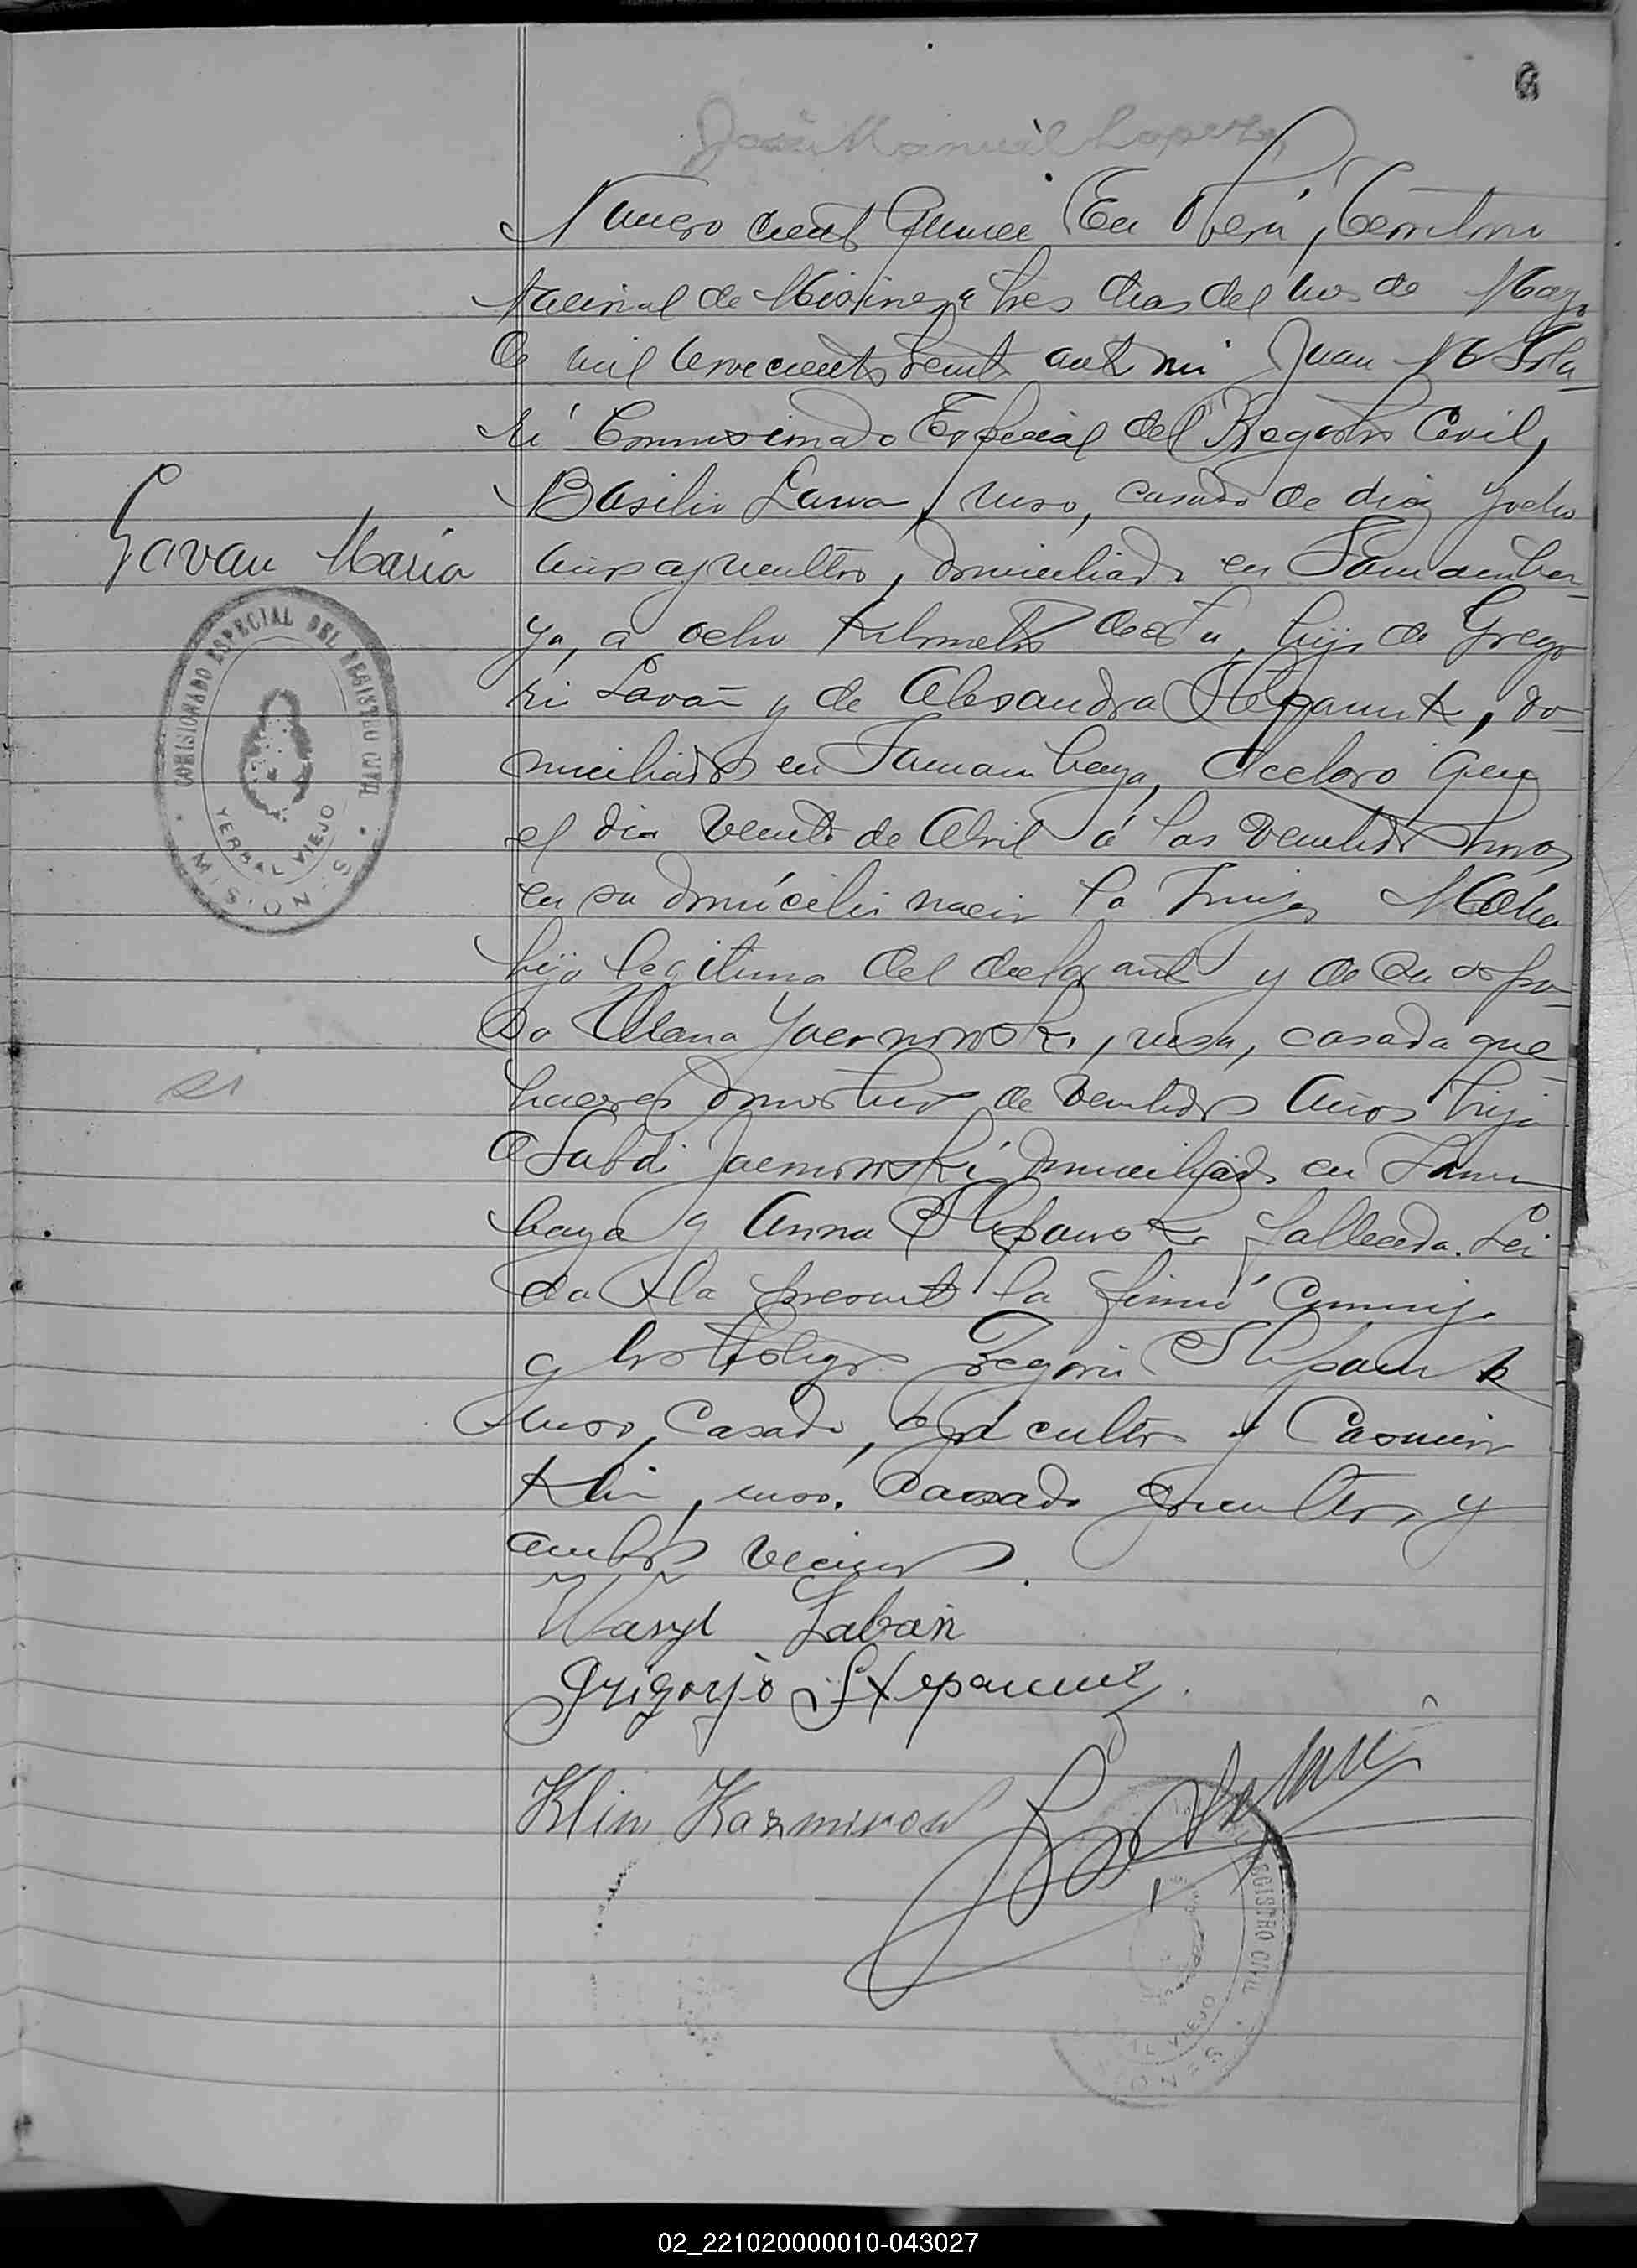 6
José Manuel Lopez
Numero ciento quince En Oberá, Territorio
Nacional de Misiones a tres dias del mes de Mayo
de mil novecientos treinta ante mi Juan M Sola-
ri Comisionado Especial del Registro Civil,
Basilio Lavan, ruso, casado de diez y ocho
Lavan Maria
años agricultor, domiciliado en Tamanba-
ya, a ocho kilometros de esta, hijo de Grego
rio Lavan y de Alesandra Stepaniuk, do-
miciliados en Tamanbaya, declaro que
el dia veinte de Abril á las veintidos horas
en su domicilio nacio la mujer Maria
hija legitima del declarante y de su espo-
sa Ulana, rusa, casada que
haceres domesticos de veintidos años hija
de domiciliado en
baya y Anna fallecida. Lei
da la presente la firmó conmigo
y los testigos Gregorio Stepaniuk
ruso, casado, agricultor y Casimiro
Klin, ruso, casado agricultor, y
ambos vecinos.
Wasyl Laban
Grigorjo Stepaniuk
Klim Kazmirow
COMISIONADO ESPECIAL DEL REGISTRO CIVIL
YERBAL VIEJO
MISIONES
REGISTRO CIVIL
VIEJO
02_221020000010-043027